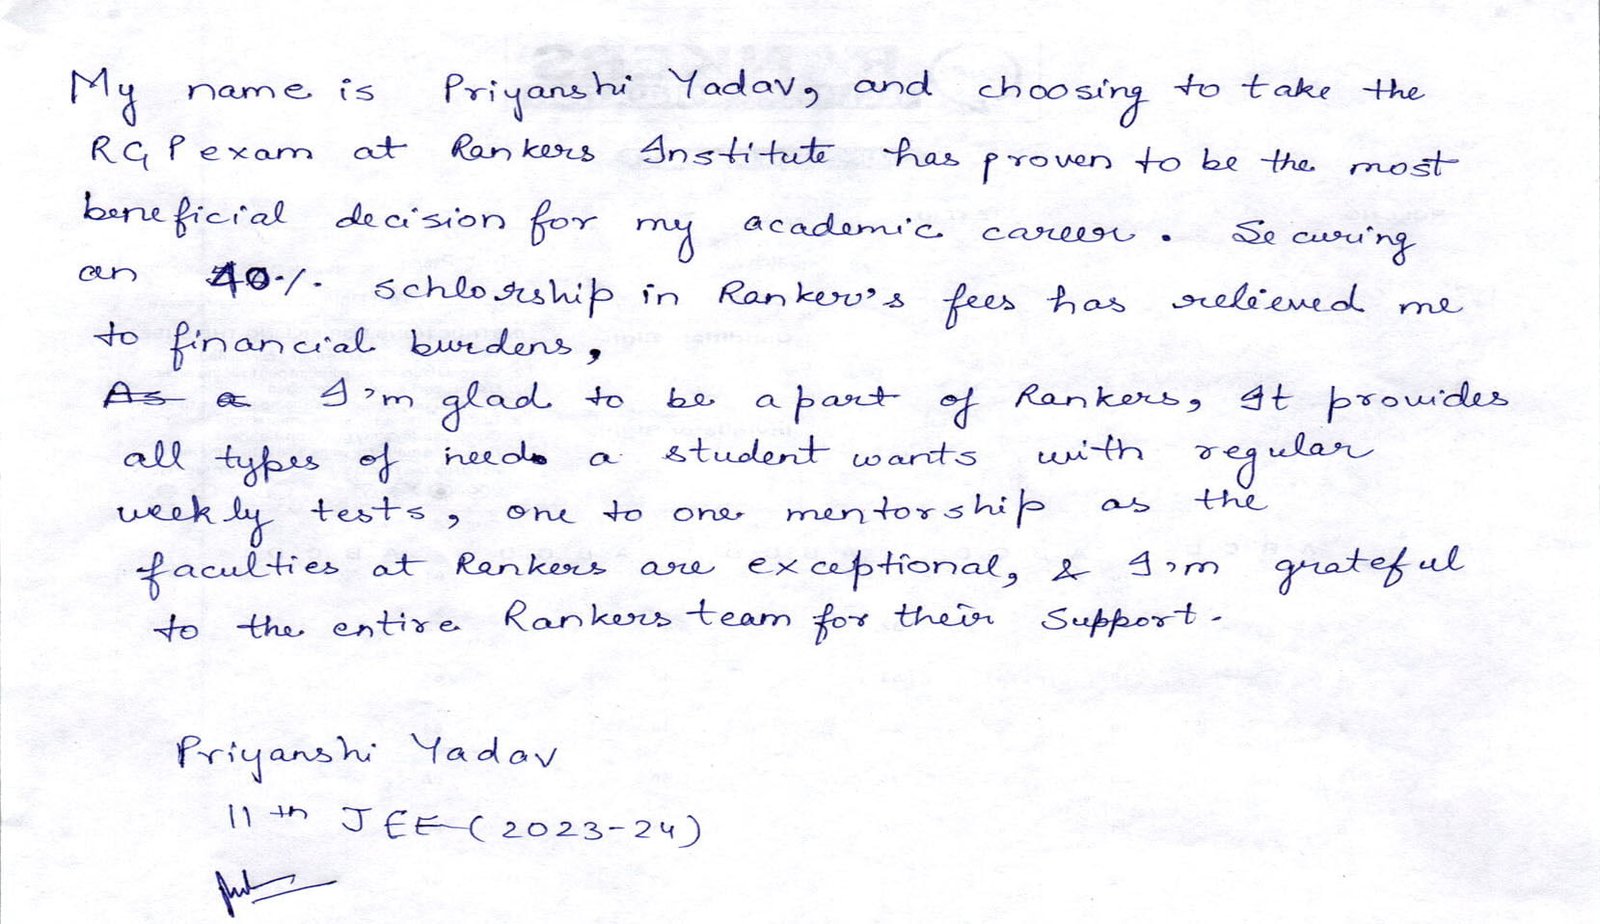 My name is Priyanshi Yadav, and choosing to take the
RGP exam at Rankers Institute has proven to be the most
beneficial decision for my academic career. Securing
an 40% schlorship in Ranker's fees has relieved me
to financial burdens,
As a I'm glad to be a part of Rankers, It provides
all types of needs a student wants with regular
weekly tests, one to one mentorship as the
faculties at Rankers are exceptional, & I'm grateful
to the entire Rankers team for their Support.
Priyanshi Yadav
11th JEE (2023-24)